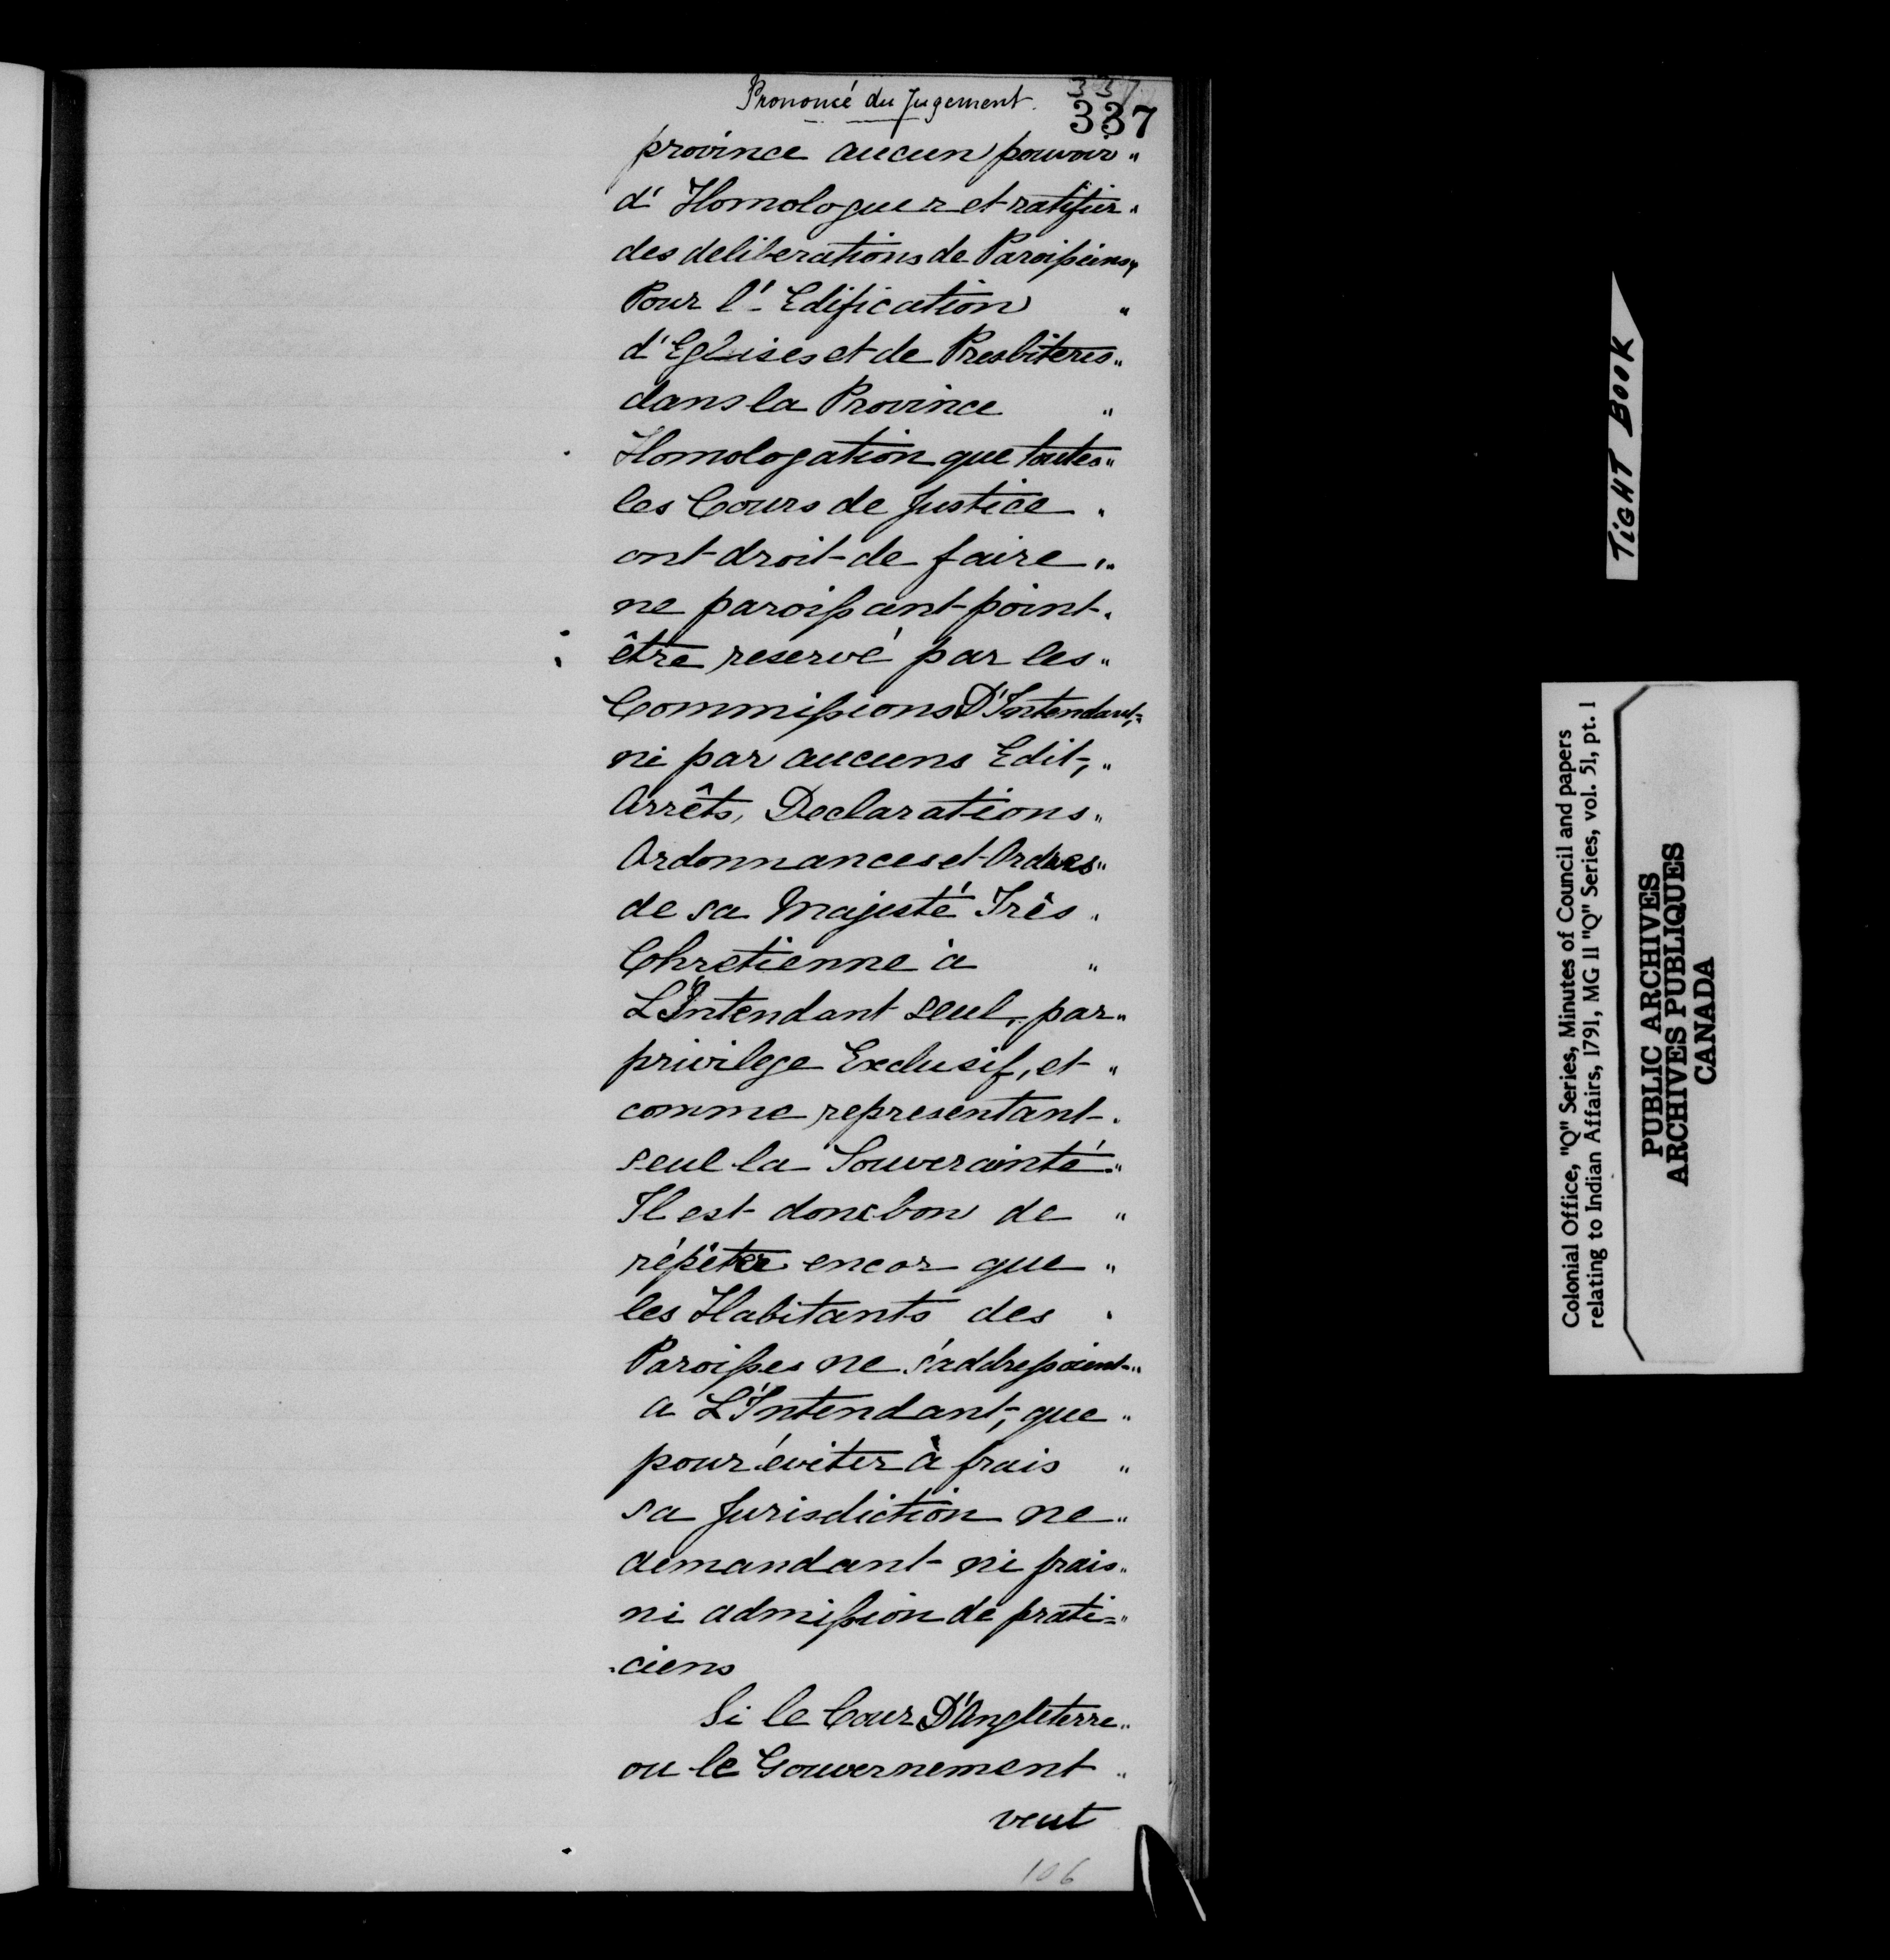 337
Prononcé du Jugement.
337
province aucun pouvoir "
d' Homologuer et ratifier "
des deliberations de Paroissiens, "
Pour l'Edification "
d'Eglises et de Presbiteres "
dans la Province "
Homologation que toutes "
les Cours de Justice "
ont droit de faire "
ne paroissant point "
être reservé par les "
Commissions D'Intendant, "
ni par aucuns Edit, "
Arrêts, Declarations "
Ordonnances et Ordres "
de sa Majesté Três "
Chretienne à "
L'Intendant seul, par "
privilege Exclusif, et "
comme representant "
seul la Souverainté "
Il est donc bon de "
répéter encor que "
les Habitants des "
Paroisses ne s'addressoient "
a L'Intendant, que "
pour éviter à frais "
sa Jurisdiction ne "
demandant ni frais "
ni admission de prati= "
ciens
Si le Cour D'Angleterre "
ou le Gouvernement "
veut
106
TIGHT BOOK
Colonial Office, "Q" Series, Minutes of Council and papers
relating to Indian Affairs, 1791, MG 11 "Q" Series, vol. 51, pt. 1
PUBLIC ARCHIVES
ARCHIVES PUBLIQUES
CANADA